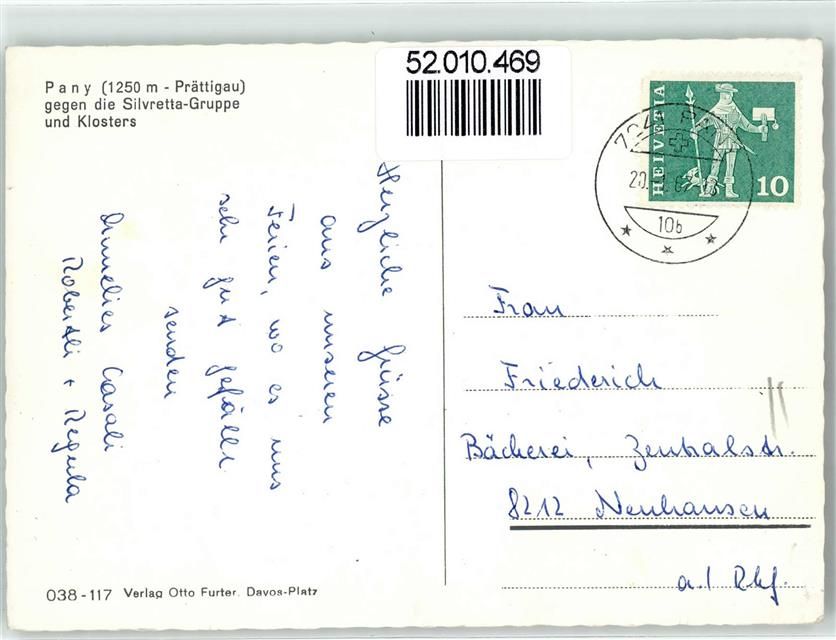 Pany (1250 m - Prättigau)
gegen die Silvretta-Gruppe
und Klosters
52.010.469
HELVETIA
10
106
Herzliche Grüsse
aus unseren
Ferien, wo es uns
sehr gut gefällt
senden
Annelies Casali
Robertli + Regula
Frau
Friederich
Bäckerei, Zentralstr.
8212 Neuhausen
a./Rhf.
038-117 Verlag Otto Furter. Davos-Platz